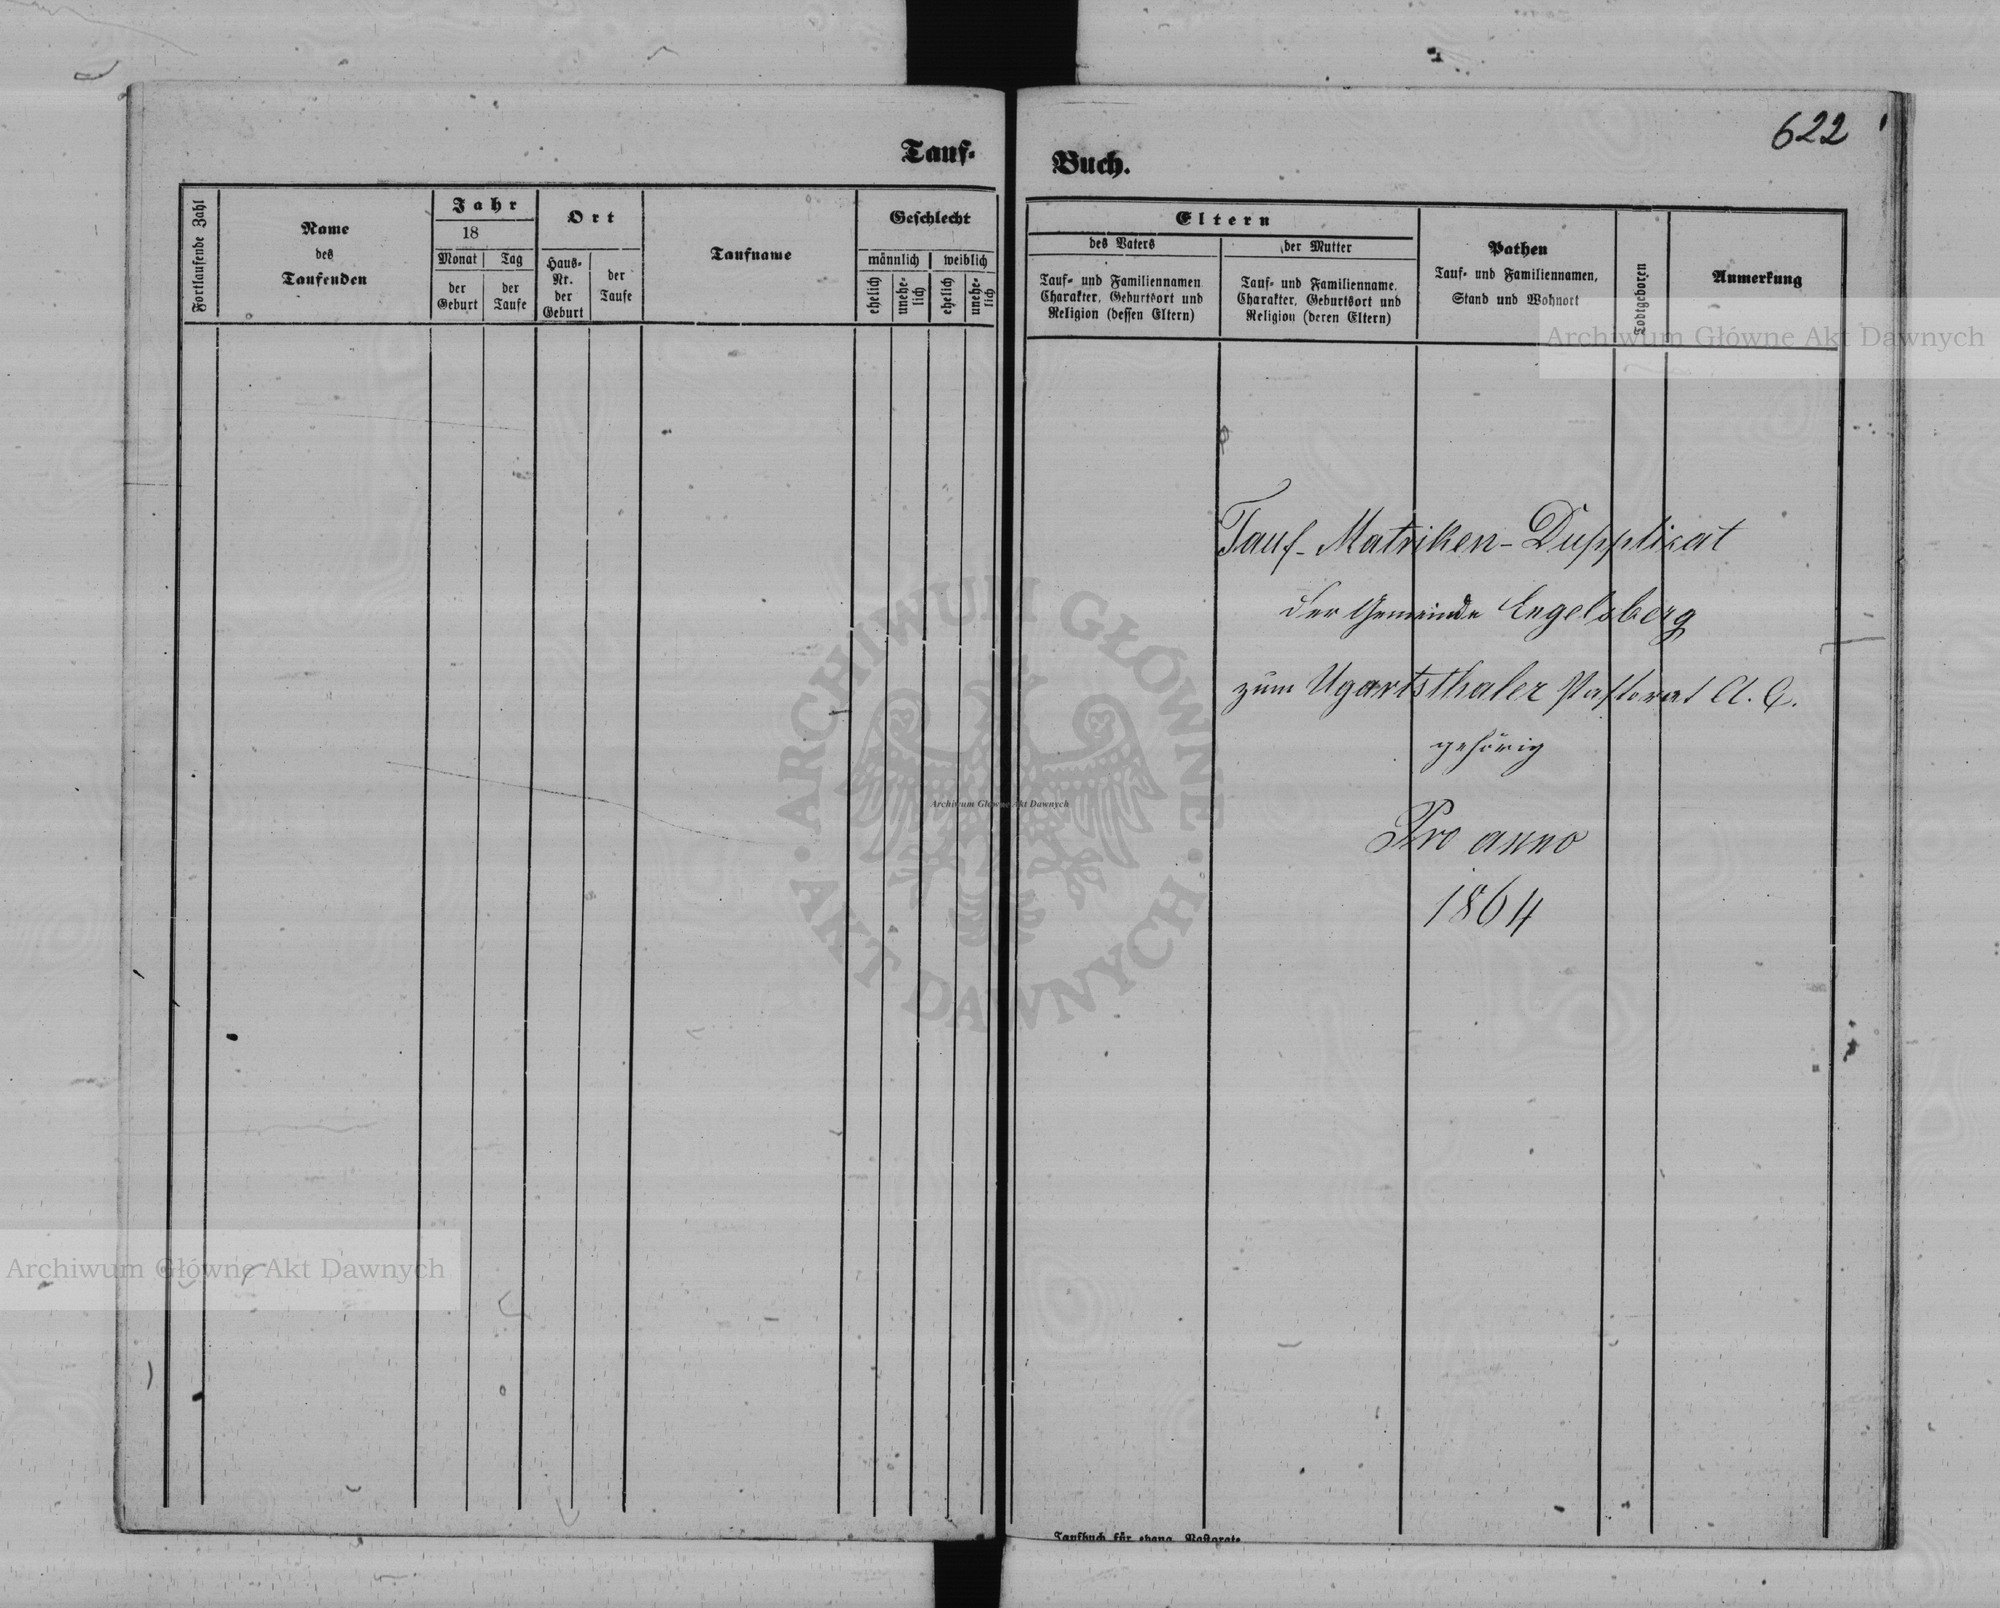 622
Tauf-
Buch.
Fortlaufende Zahl
Name
des
Taufenden
Jahr
18
Monat
Tag
der
Geburt
der
Taufe
Ort
Haus-
Nr.
der
Geburt
der
Taufe
Taufname
Geschlecht
männlich
weiblich
ehelich
unehe-
lich
ehelich
unehe-
lich
Eltern
des Vaters
der Mutter
Tauf- und Familiennamen
Charakter, Geburtsort und
Religion (dessen Eltern)
Tauf- und Familienname,
Charakter, Geburtsort und
Religion (deren Eltern)
Pathen
Tauf- und Familiennamen,
Stand und Wohnort
Todtgeboren
Anmerkung
Archiwum Główne Akt Dawnych
Tauf-Matriken-Dupplicat
der Gemeinde Engelsberg
zum Ugartsthaler Pastorat A. C.
gehörig
Pro anno
1864
ARCHIWUM GŁÓWNE
AKT DAWNYCH
Archiwum Główne Akt Dawnych
Archiwum Główne Akt Dawnych
Taufbuch für evang. Pastorate